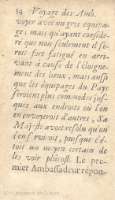 14 Voyage des Amb.
voyer avec un gros equipa-
ge; mais qu'ayant considé-
ré que non seulement il se-
roit fort fatigué en arri-
vant à cause de l'éloigne-
ment des lieux, mais aussi
que les équipages du Païs
seroient plus commodes jus-
ques aux endroits où l'on
en trouveroit d'autres, Sa
Majesté avoit résolu qu'on
s'en serviroit, puis que c'é-
toit un moyen certain de
les voir plûtost. Le pre-
mier Ambassadeur répon-